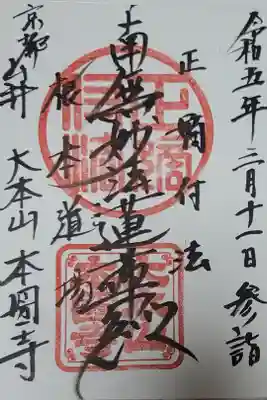 令和五年二月十一日 参詣
正嫡付法
南無妙法蓮華経
根本道場
京都山科 大本山 本圀寺